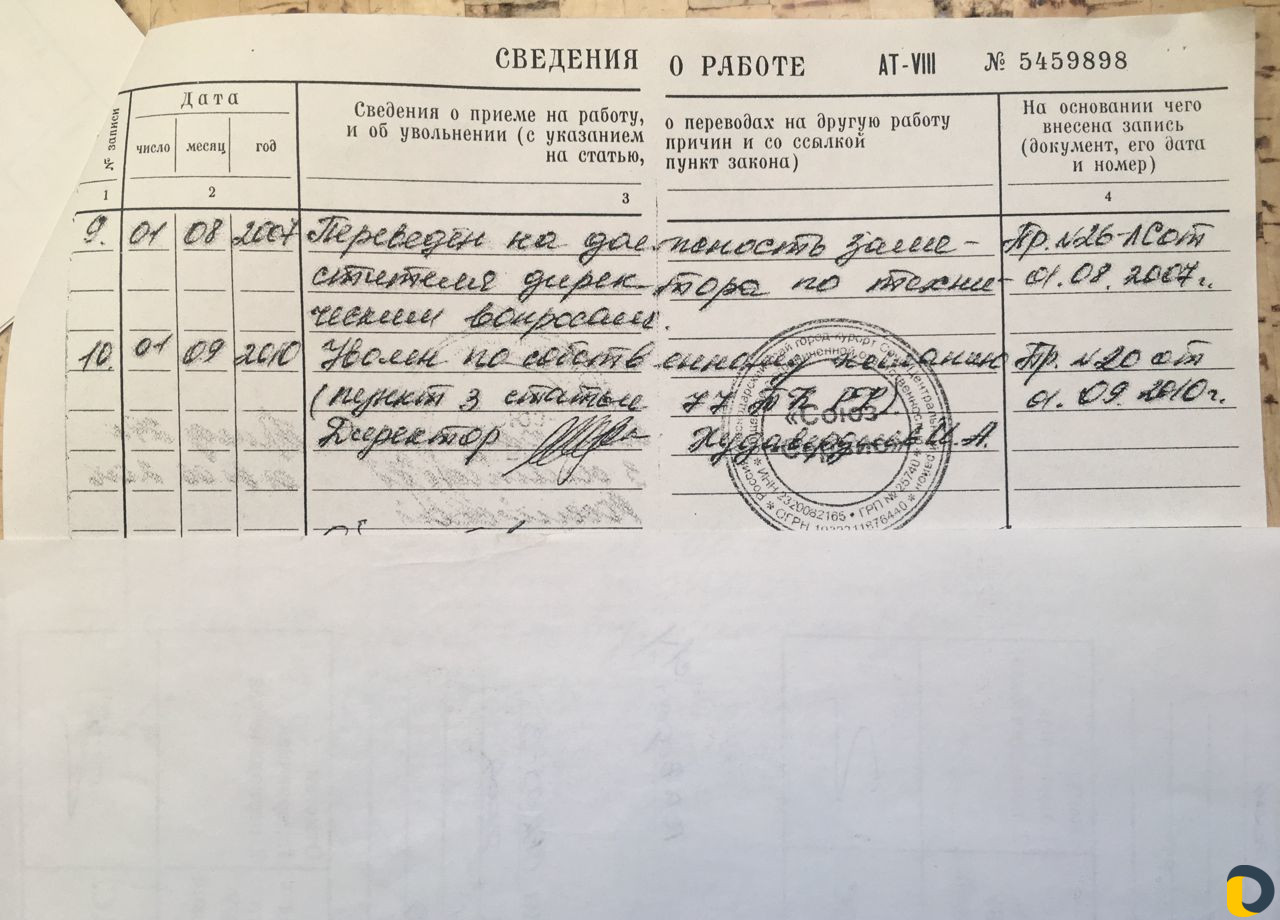 СВЕДЕНИЯ О РАБОТЕ АТ-VIII № 5459898
№ записи
Дата
число месяц год
Сведения о приеме на работу, о переводах на другую работу
и об увольнении (с указанием причин и со ссылкой
на статью, пункт закона)
На основании чего
внесена запись
(документ, его дата
и номер)
1 2 3 4
9. 01 08 2007 Переведен на должность заме- Пр. №26-ЛС от
стителя директора по техни- 01.08.2007г.
ческим вопросам.
10. 01 09 2010 Уволен по собственному желанию Пр. №20 от
(пункт 3 статьи 77 ТК РФ) 01.09.2010г.
Директор Худавердян И.А.
«СОЮЗ
ИНН 2320082165 • ГРП № 25740